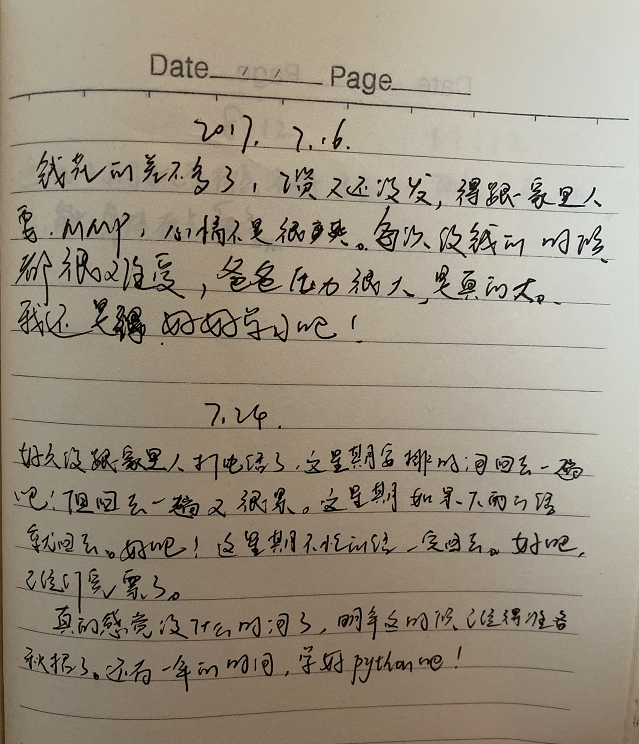 Date / / Page
2017. 7.16.
钱花的差不多了，又还没发，得跟家里人
要. MMP，心情不是很爽。每次没钱的时候
都很难受，爸爸压力很大，是真的大。
我还是得好好学习吧！
7.24.
好久没跟家里人打电话了，这星期安排时间回去一趟
吧！但回去一趟又很累。这星期如果不下雨的话
就回去。好吧！这星期不忙的话一定回去。好吧，
已经订完票了。
真的感觉没什么时间了，明年这时候已经得准备
秋招了。还有一年的时间，学好python吧！